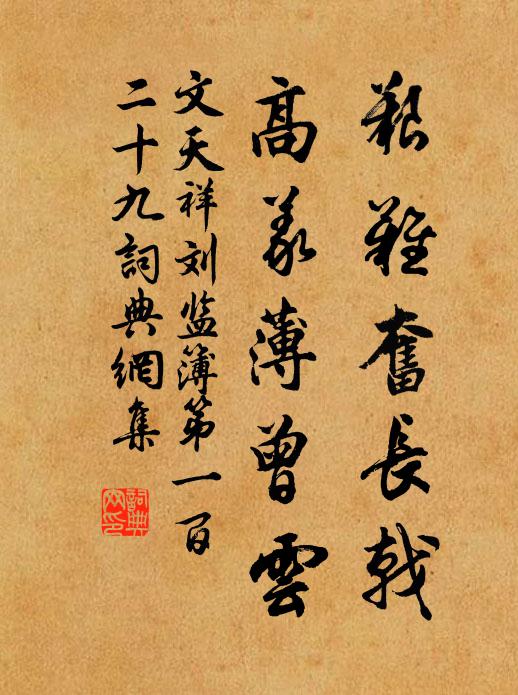 艱難奮長戟
高義薄曾雲
文天祥刘监簿第一百
二十九詞典網集
詞典网印